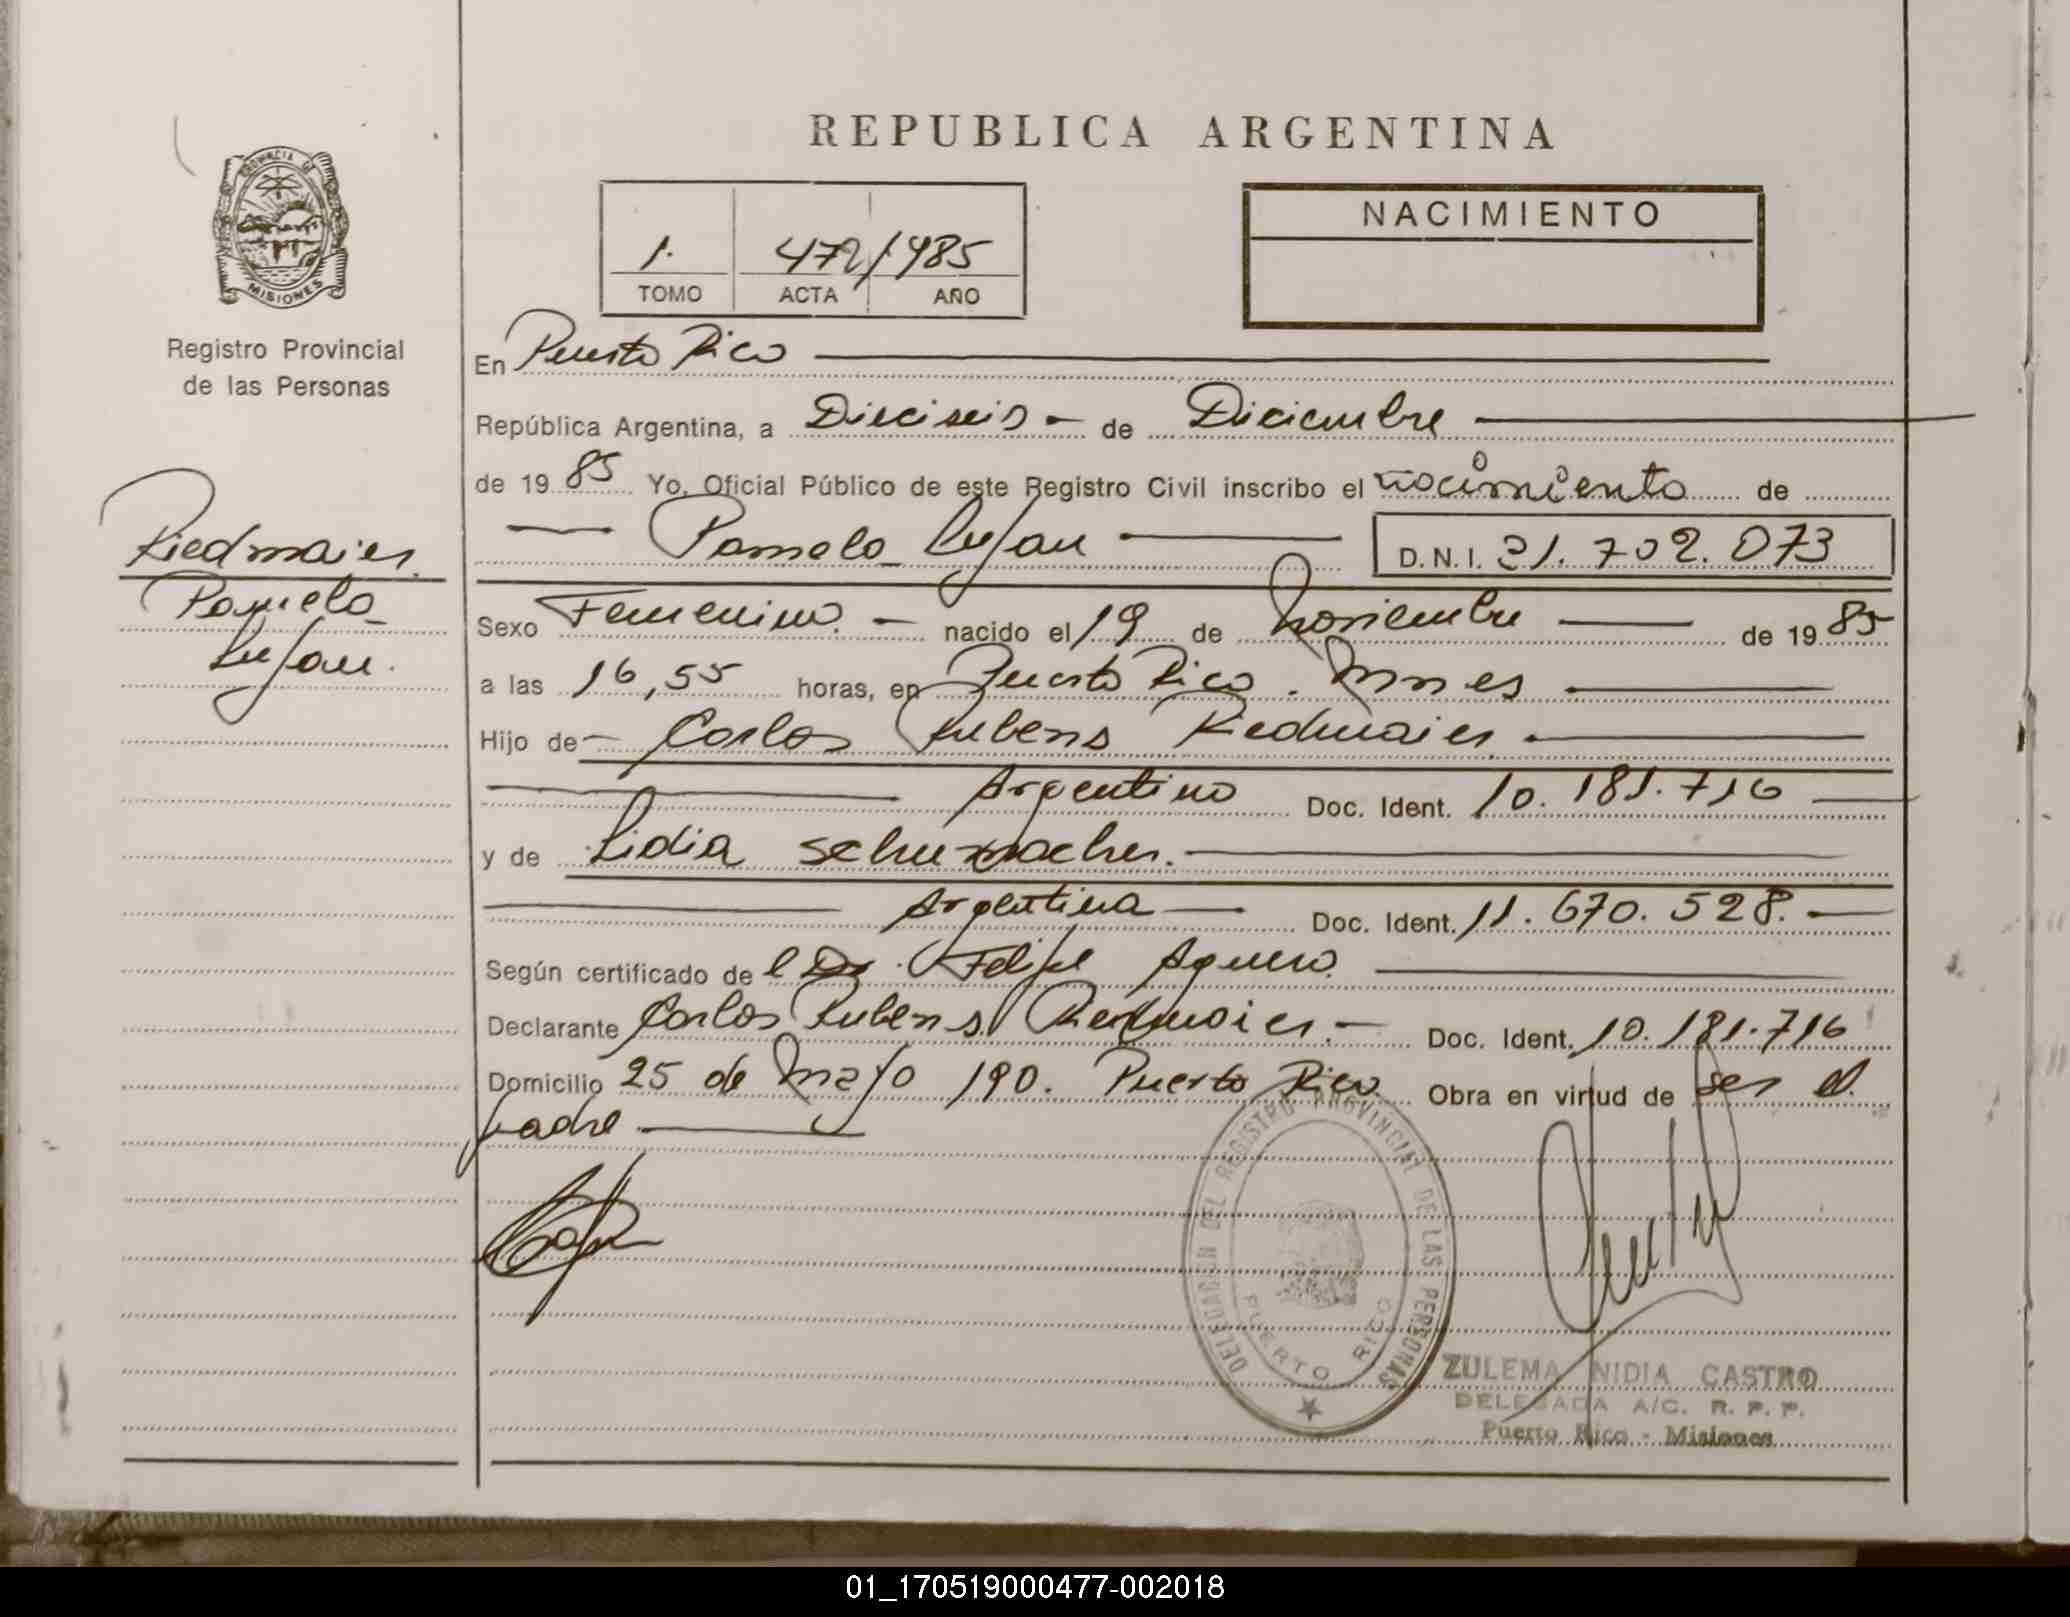 REPUBLICA ARGENTINA
PROVINCIA DE
MISIONES
Registro Provincial
de las Personas
1.
472/985
TOMO ACTA AÑO
NACIMIENTO
En Puerto Rico
República Argentina, a Dieciseis de Diciembre
de 19 85 Yo, Oficial Público de este Registro Civil inscribo el nacimiento de
Pamela Lujan D.N.I. 31.702.073
Riedmaier
Pamela
Lujan.
Sexo Femenino. nacido el 19 de Noviembre de 19 85
a las 16,55 horas, en Puerto Rico. Mnes
Hijo de Carlos Rubens Riedmaier
Argentino Doc. Ident. 10.181.716
y de Lidia Schumacher.
Argentina Doc. Ident. 11.670.528.
Según certificado de l Dr. Felipe Aguero.
Declarante Carlos Rubens Riedmaier. Doc. Ident. 10.181.716
Domicilio 25 de Mayo 190. Puerto Rico Obra en virtud de ser el
padre
DELEGACION DEL REGISTRO PROVINCIAL DE LAS PERSONAS
PUERTO RICO
ZULEMA NIDIA CASTRO
DELEGADA A/C. R. P. P.
Puerto Rico - Misiones
01_170519000477-002018